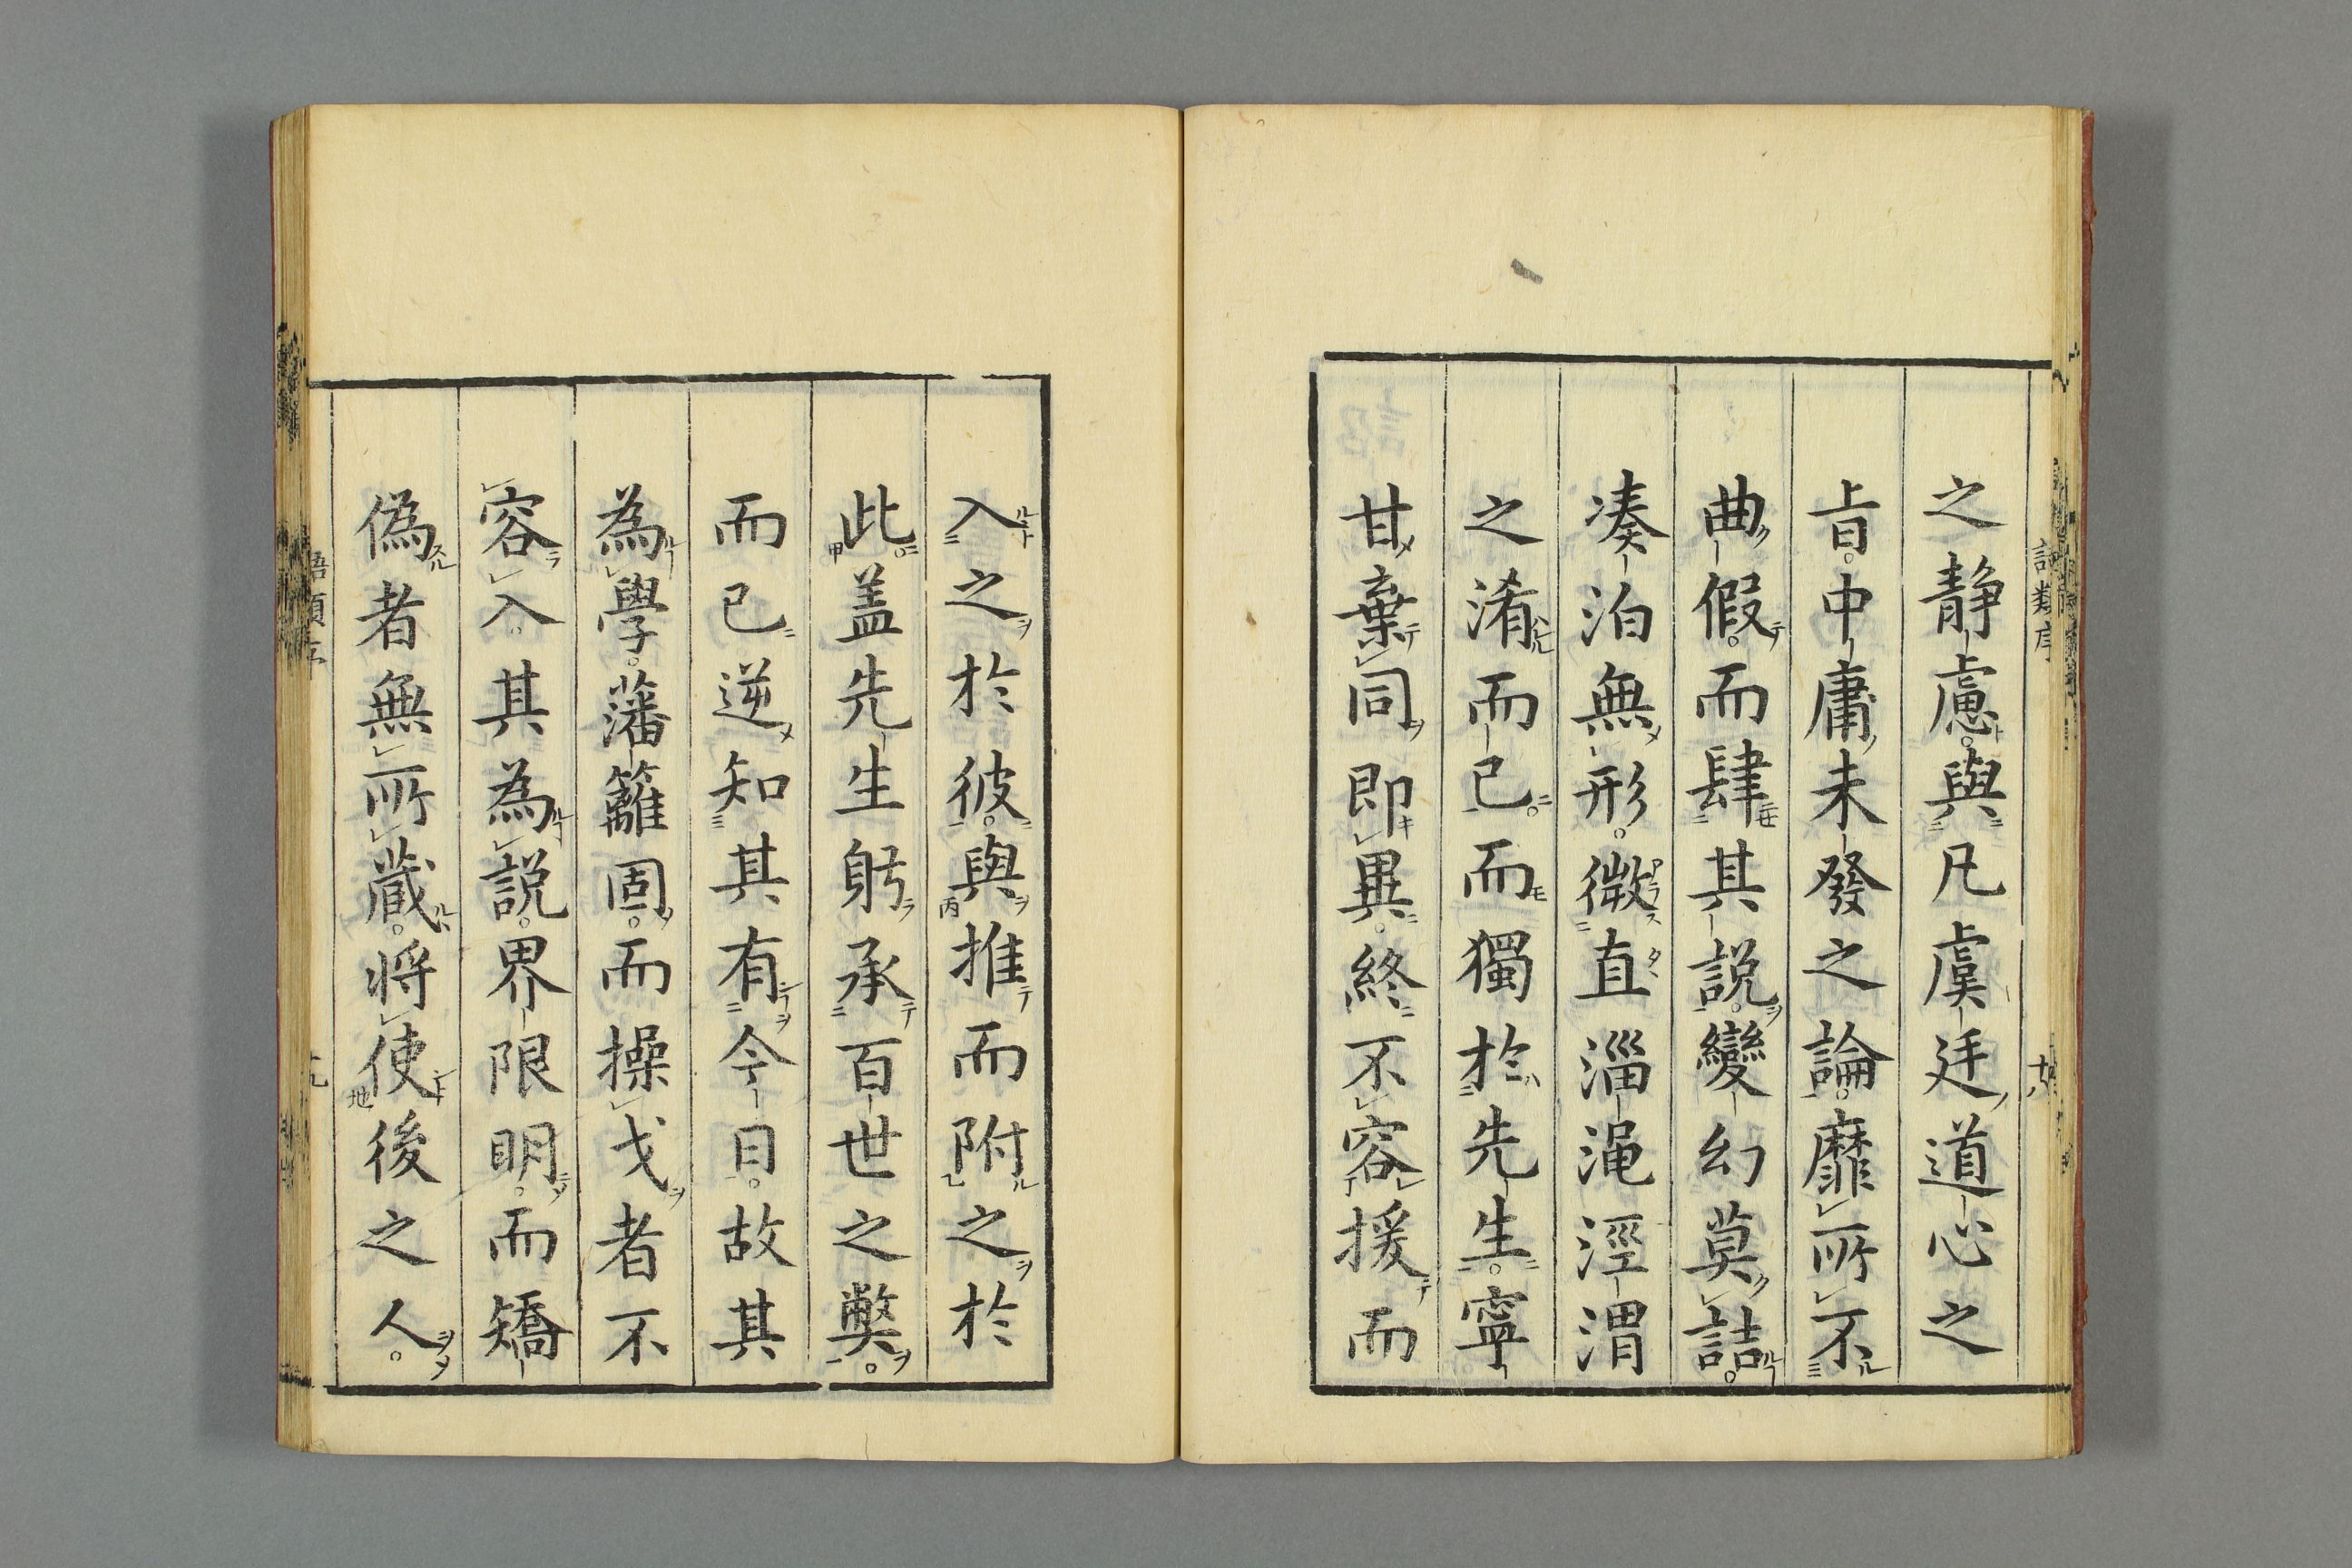 之靜慮。與凡虞廷道心之
旨。中庸未發之論。靡所不
曲假。而肆其説。變幻莫詰。
湊泊無形。微直淄澠涇渭
之淆而已。而獨於先生。寧
甘棄同即異。終不容援而
入之於彼。與推而附之於
此盖先生躬承百世之弊。
而已逆知其有今日。故其
為學。藩籬固。而操戈者不
容入。其為説。界限明。而矯
偽者無所藏。將使後之人。